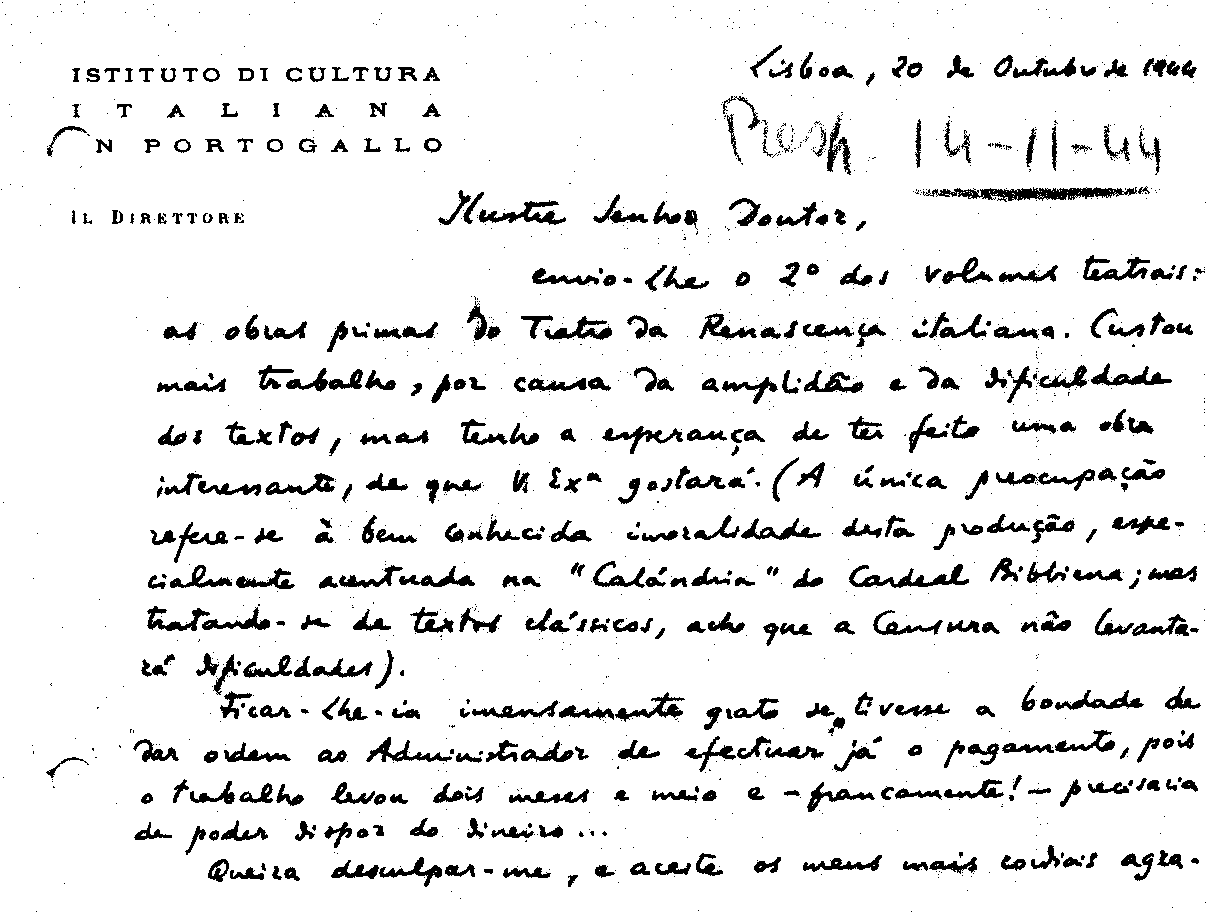 ISTITUTO DI CULTURA
ITALIANA
IN PORTOGALLO
IL DIRETTORE
Lisboa, 20 de Outubro de 1944
14-11-44
Ilustre Senhor Doutor,
envio-lhe o 2º dos volumes teatrais:
as obras primas do Teatro da Renascença italiana. Custou
mais trabalho, por causa da amplidão e da dificuldade
dos textos, mas tenho a esperança de ter feito uma obra
interessante, de que V. Exª gostará. (A única preocupação
refere-se à bem conhecida imoralidade desta produção, espe-
cialmente acentuada na "Calándria" do Cardeal Bibbiena; mas
tratando-se de textos clássicos, acho que a Censura não levanta-
rá dificuldades).
Ficar-lhe-ia imensamente grato se tivesse a bondade de
dar ordem ao Administrador de efectuar já o pagamento, pois
o trabalho levou dois meses e meio e - francamente! - precisaria
de poder dispor do dineiro...
Queira desculpar-me, e aceite os meus mais cordiais agra-